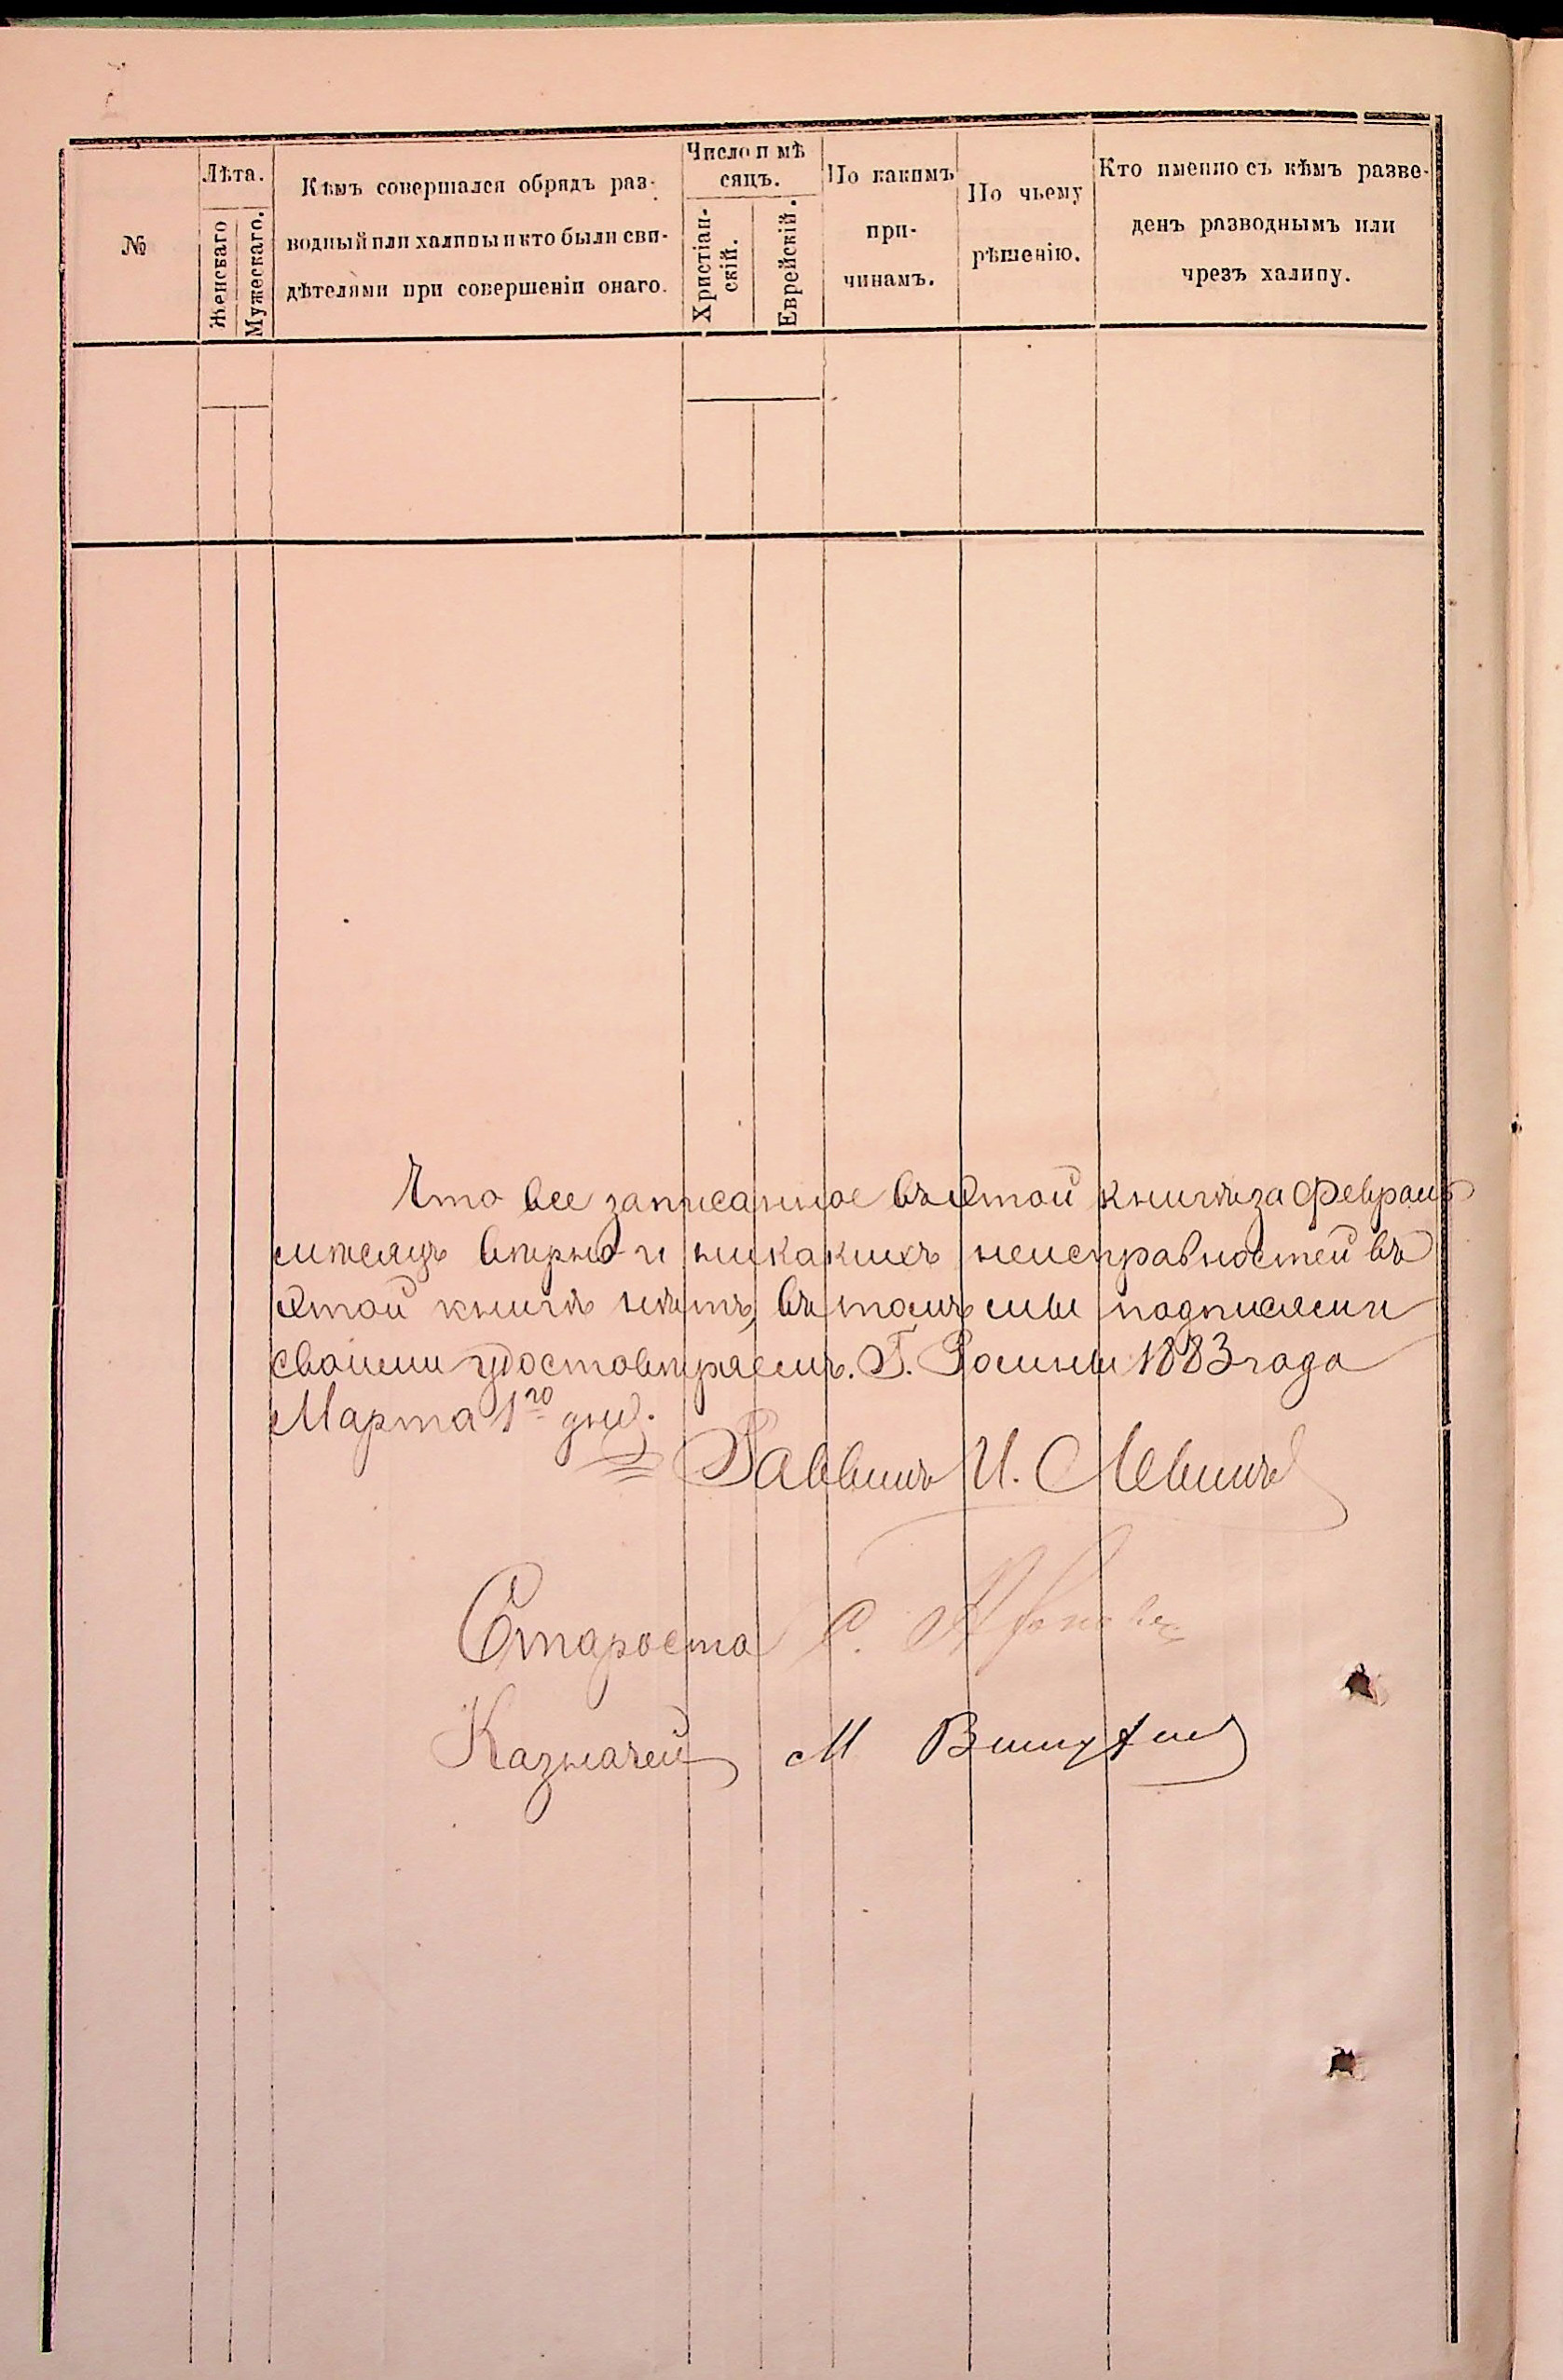 №
Лѣта.
Женскаго
Мужескаго.
Кѣмъ совершался обрядъ раз-
водный или халицы и кто были сви-
дѣтелями при совершеніи онаго.
Число и мѣ
сяцъ.
Христіан-
скій.
Еврейскій.
По какимъ
при-
чинамъ.
По чьему
рѣшенію.
Кто именно съ кѣмъ разве-
денъ разводнымъ или
чрезъ халицу.
Что все записанное въ этой книгѣ за февраль
мѣсяцъ вѣрно и никакихъ неисправностей въ
этой книгѣ нѣтъ, въ томъ мы подписями
своими удостовѣряемъ. Г. Ромны 1883 года
Марта 1го дня.
Раввинъ И. Левинъ
Староста С.
Казначей М